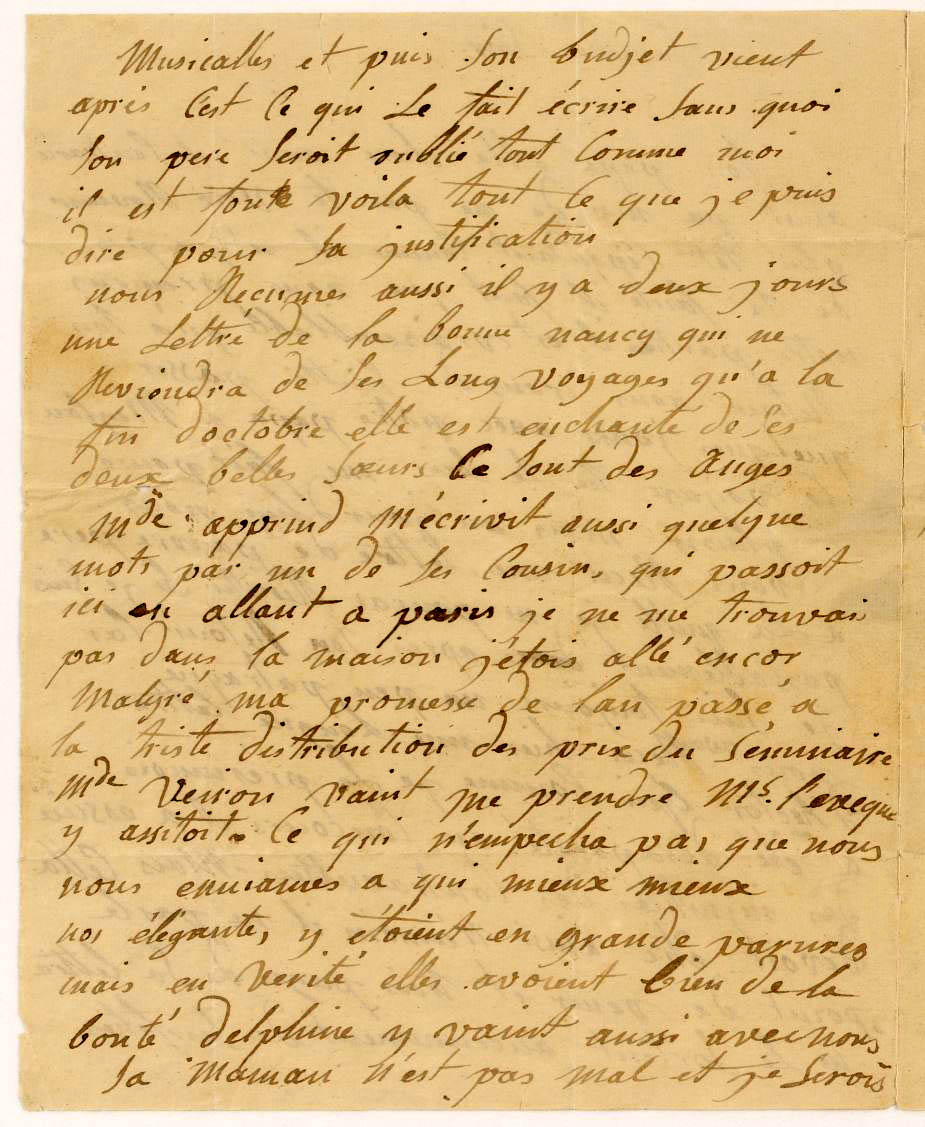 Musicalles et puis son budjet vient
après C'est Ce qui Le fait écrire Sans quoi
Son pere Seroit oublié tout Comme moi
il est voila tout Ce que je puis
dire pour Sa justification
nous Recumes aussi il y a deux jours
une Lettre de la bonne nancy qui ne
Reviendra de Ses Long voyages qu'a la
fin doctobre elle est enchanté de Ses
deux belles Sœurs Ce Sont des Anges
Mde M'écrivit aussi quelque
mots par un de Ses Cousins, qui passoit
ici en allant a paris je ne me trouvai
pas dans la maison j'étois allé encor
Malgré ma promesse de lan passé a
la triste distribution des prix du Séminaire
Mde Veiron vaint me prendre Mr. l'eveque
y assitoit. Ce qui n'empecha pas que nous
nous enniames a qui mieux mieux
nos élégantes, y étoient en grande parures
mais en verité elles avoient bien de la
bonté delphine y vaint aussi avec nous
Sa Maman n'est pas mal et je Serois